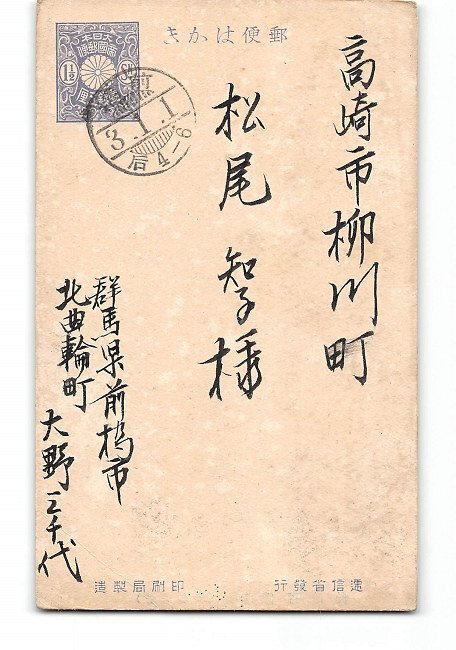 郵便はかき
大日本
帝國郵便
1½ Sn
前橋
3.1.1
后4-6
高崎市柳川町
松尾 智子様
群馬県前橋市
北曲輪町
大野三千代
遞信省發行
印刷局製造